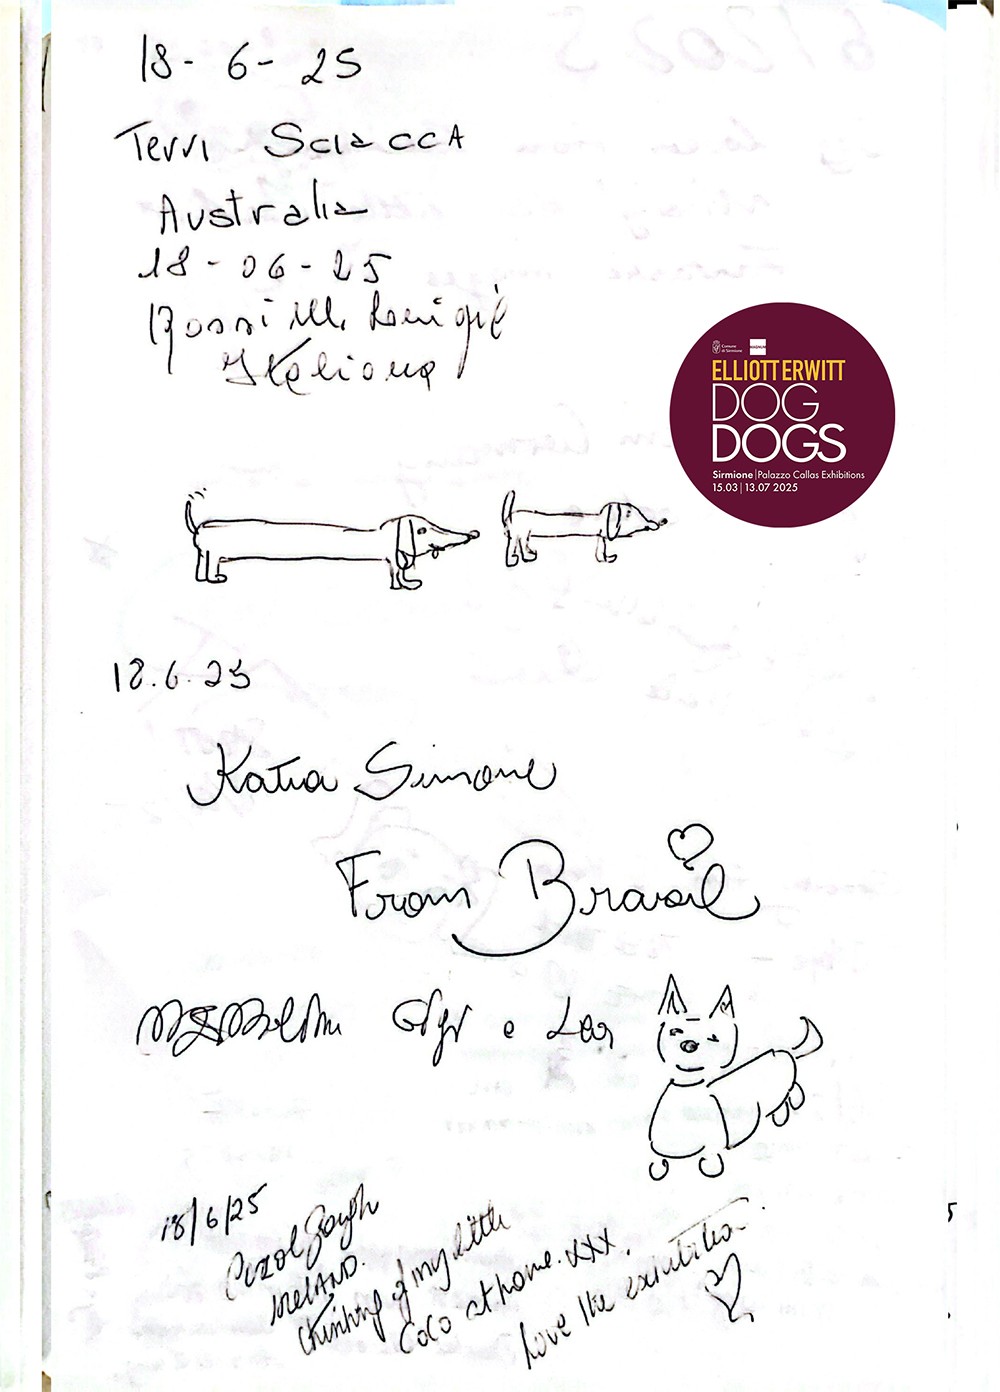 18-6-25
Terri SciaccA
Australia
18-06-25
Italiana
Comune
di Sirmione
MAGNUM
ELLIOTT ERWITT
DOG
DOGS
Sirmione | Palazzo Callas Exhibitions
15.03 | 13.07 2025
18.6.25
Katia Simone
From Brasil
e Lea
18/6/25
Carol Gough
IRELAND.
thinking of my little
CoCo at home. xxx.
Love the exhibition.